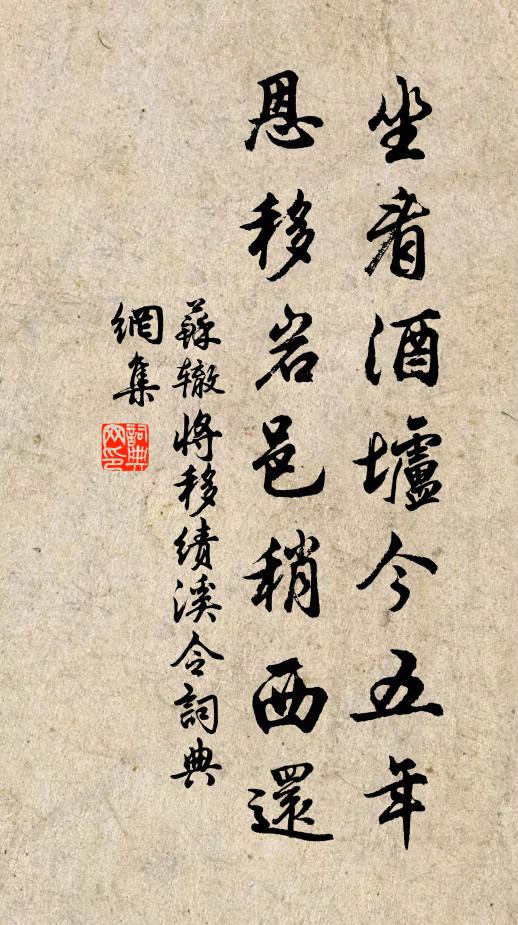 坐看酒壚今五年
恩移岩邑稍西還
蘇辙将移绩溪令詞典
網集
詞典
网印